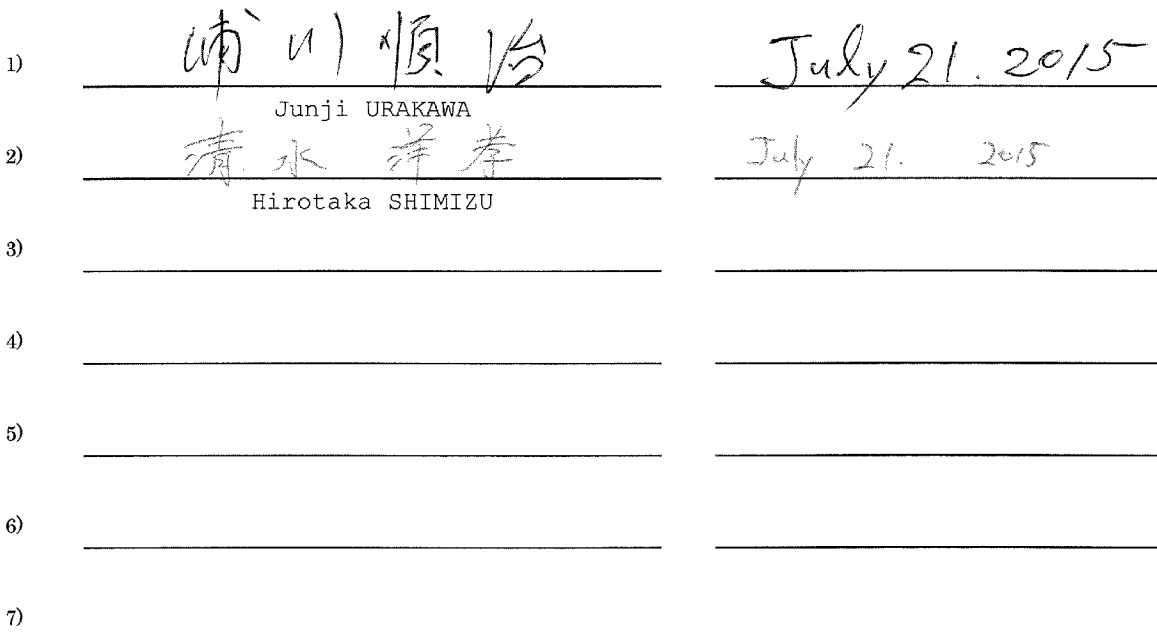 1) 浦川順治 July 21. 2015
Junji URAKAWA
2) 清水 洋孝 July 21. 2015
Hirotaka SHIMIZU
3)
4)
5)
6)
7)